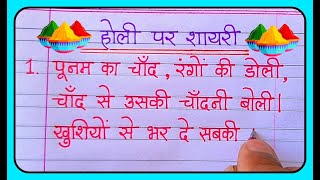 होली पर शायरी
1. पूनम का चाँद, रंगों की डोली,
चाँद से उसकी चाँदनी बोली।
खुशियों से भर दे सबकी